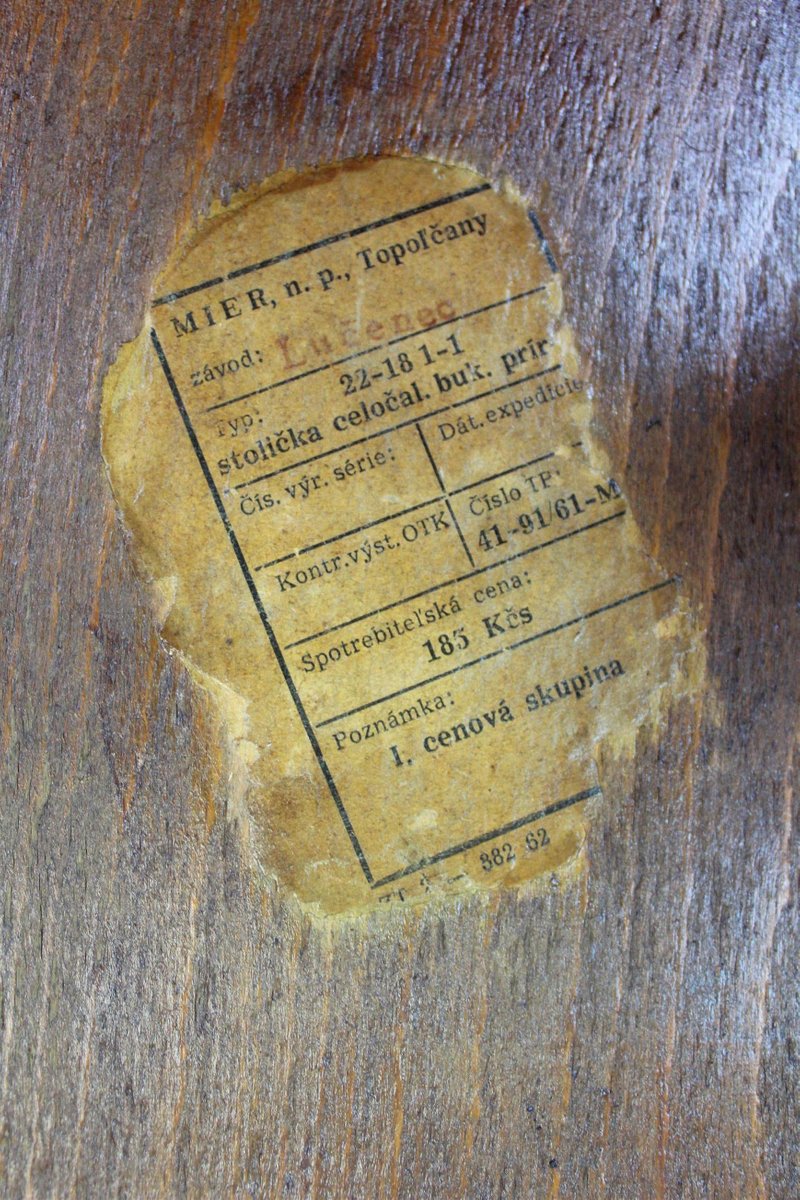 MIER, n. p., Topoľčany
závod: Lučenec
Typ: 22-18 1-1
stolička celočal. buk. prír
Čís. výr. série:
Dát. expedície
Kontr. výst. OTK
Číslo TP:
41-91/61-M
Spotrebiteľská cena:
185 Kčs
Poznámka:
I. cenová skupina
382 62